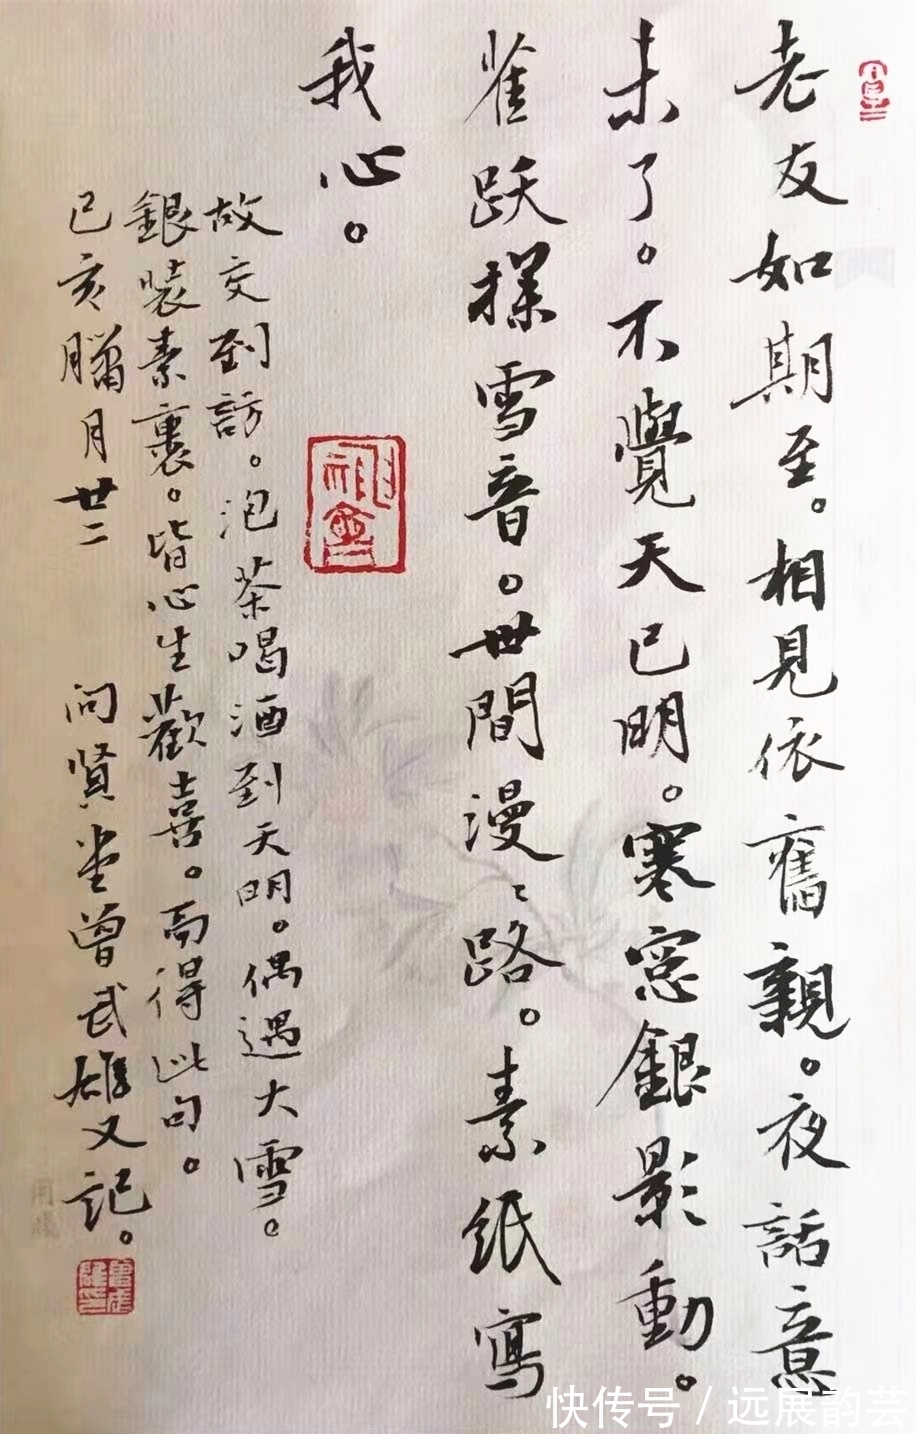 老友如期至。相見依舊親。夜話意
未了。不覺天已明。寒窓銀影動。
雀跃探雪音。世間漫〻路。素紙寫
我心。
故交到訪。泡茶喝酒到天明。偶遇大雪。
銀裝素裹。皆心生歡喜。而得此句。
已亥臘月廿二 问賢堂曾武雄又記。
快传号 / 远展韵芸